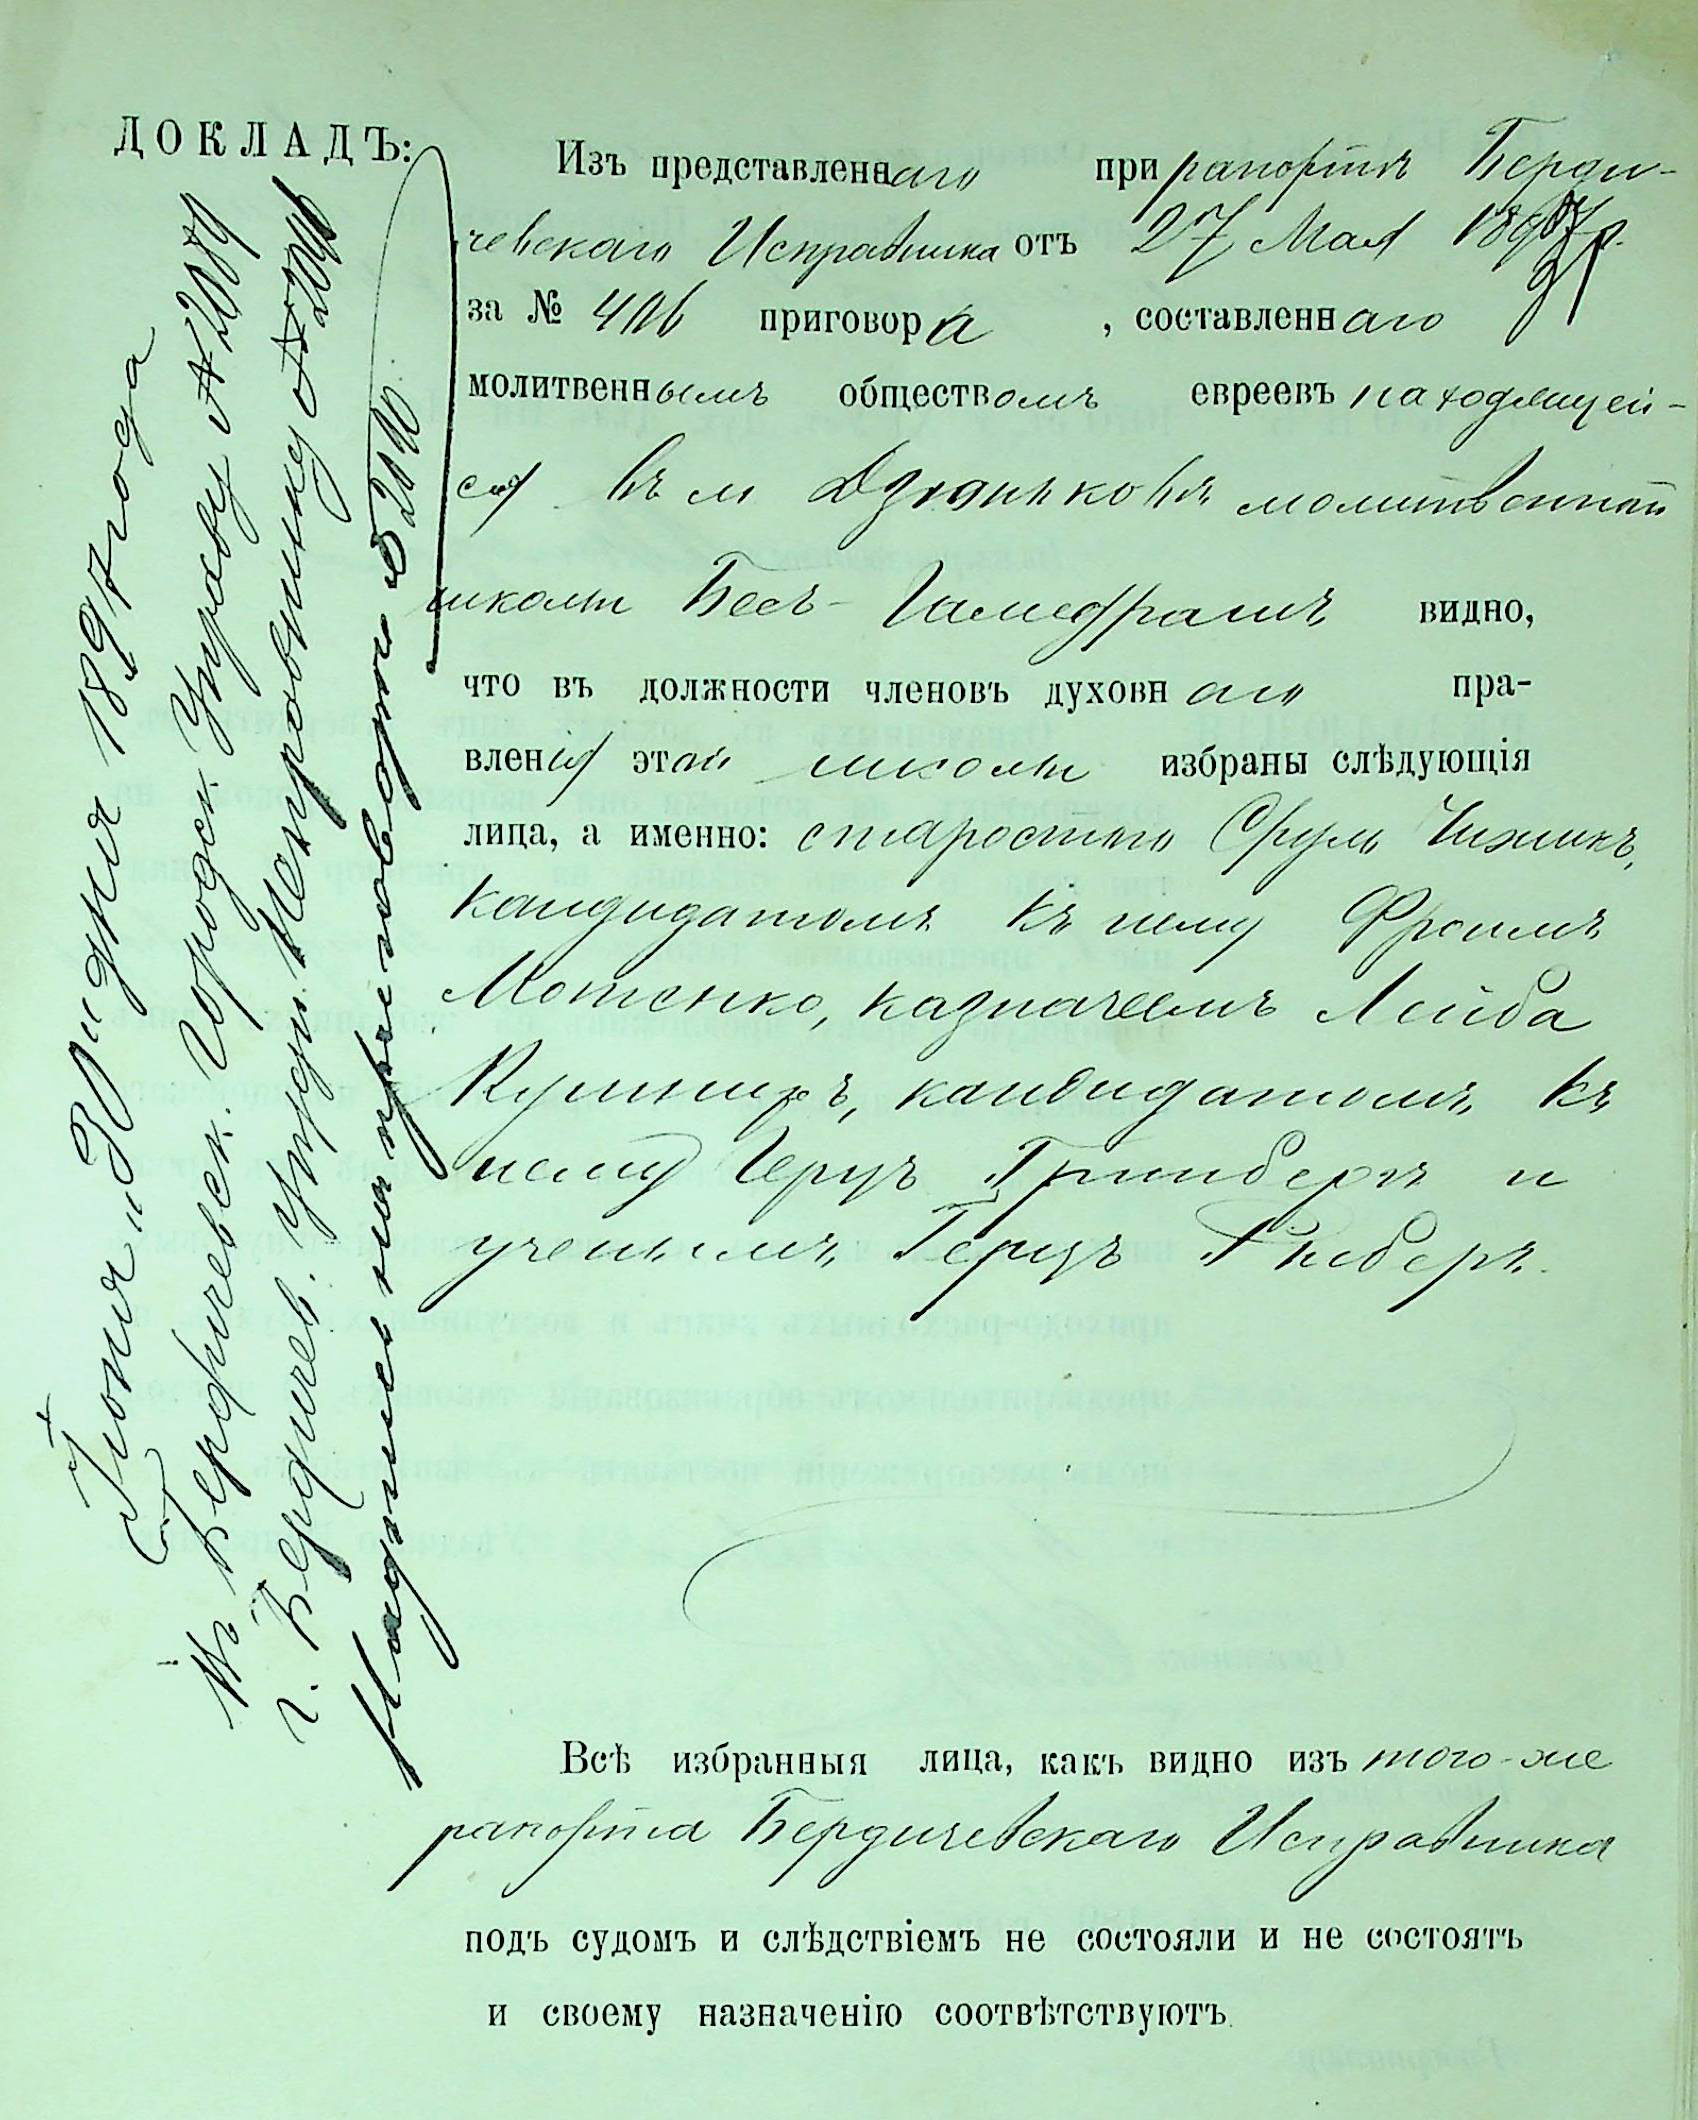 ДОКЛАДЪ:
Изъ представленнаго при рапортѣ Берди-
чевскаго Исправника отъ 27 Мая 1897 г.
за № 406 приговора, составленнаго
молитвеннымъ обществомъ евреевъ находящей-
ся въ м Дзюньковѣ молитвенной
школы Бесъ-Гамедрашъ видно,
что въ должности членовъ духовнаго пра-
вленія этой школы избраны слѣдующія
лица, а именно: старостою Сруль Чижикъ,
кандидатомъ къ нему Фроимъ
Мотенко, казначеемъ Лейба
Кушниръ, кандидатомъ къ
нему Герцъ Гринбергъ и
ученымъ Герцъ
Всѣ избранныя лица, какъ видно изъ того-же
рапорта Бердичевскаго Исправника
подъ судомъ и слѣдствіемъ не состояли и не состоятъ
и своему назначенію соотвѣтствуютъ.
Іюня „30" дня 1897 года
Бердичевск. Городск. Управу № 2089
г. Бердичев. Уѣздн. Исправнику №
Надпись на приговорѣ №